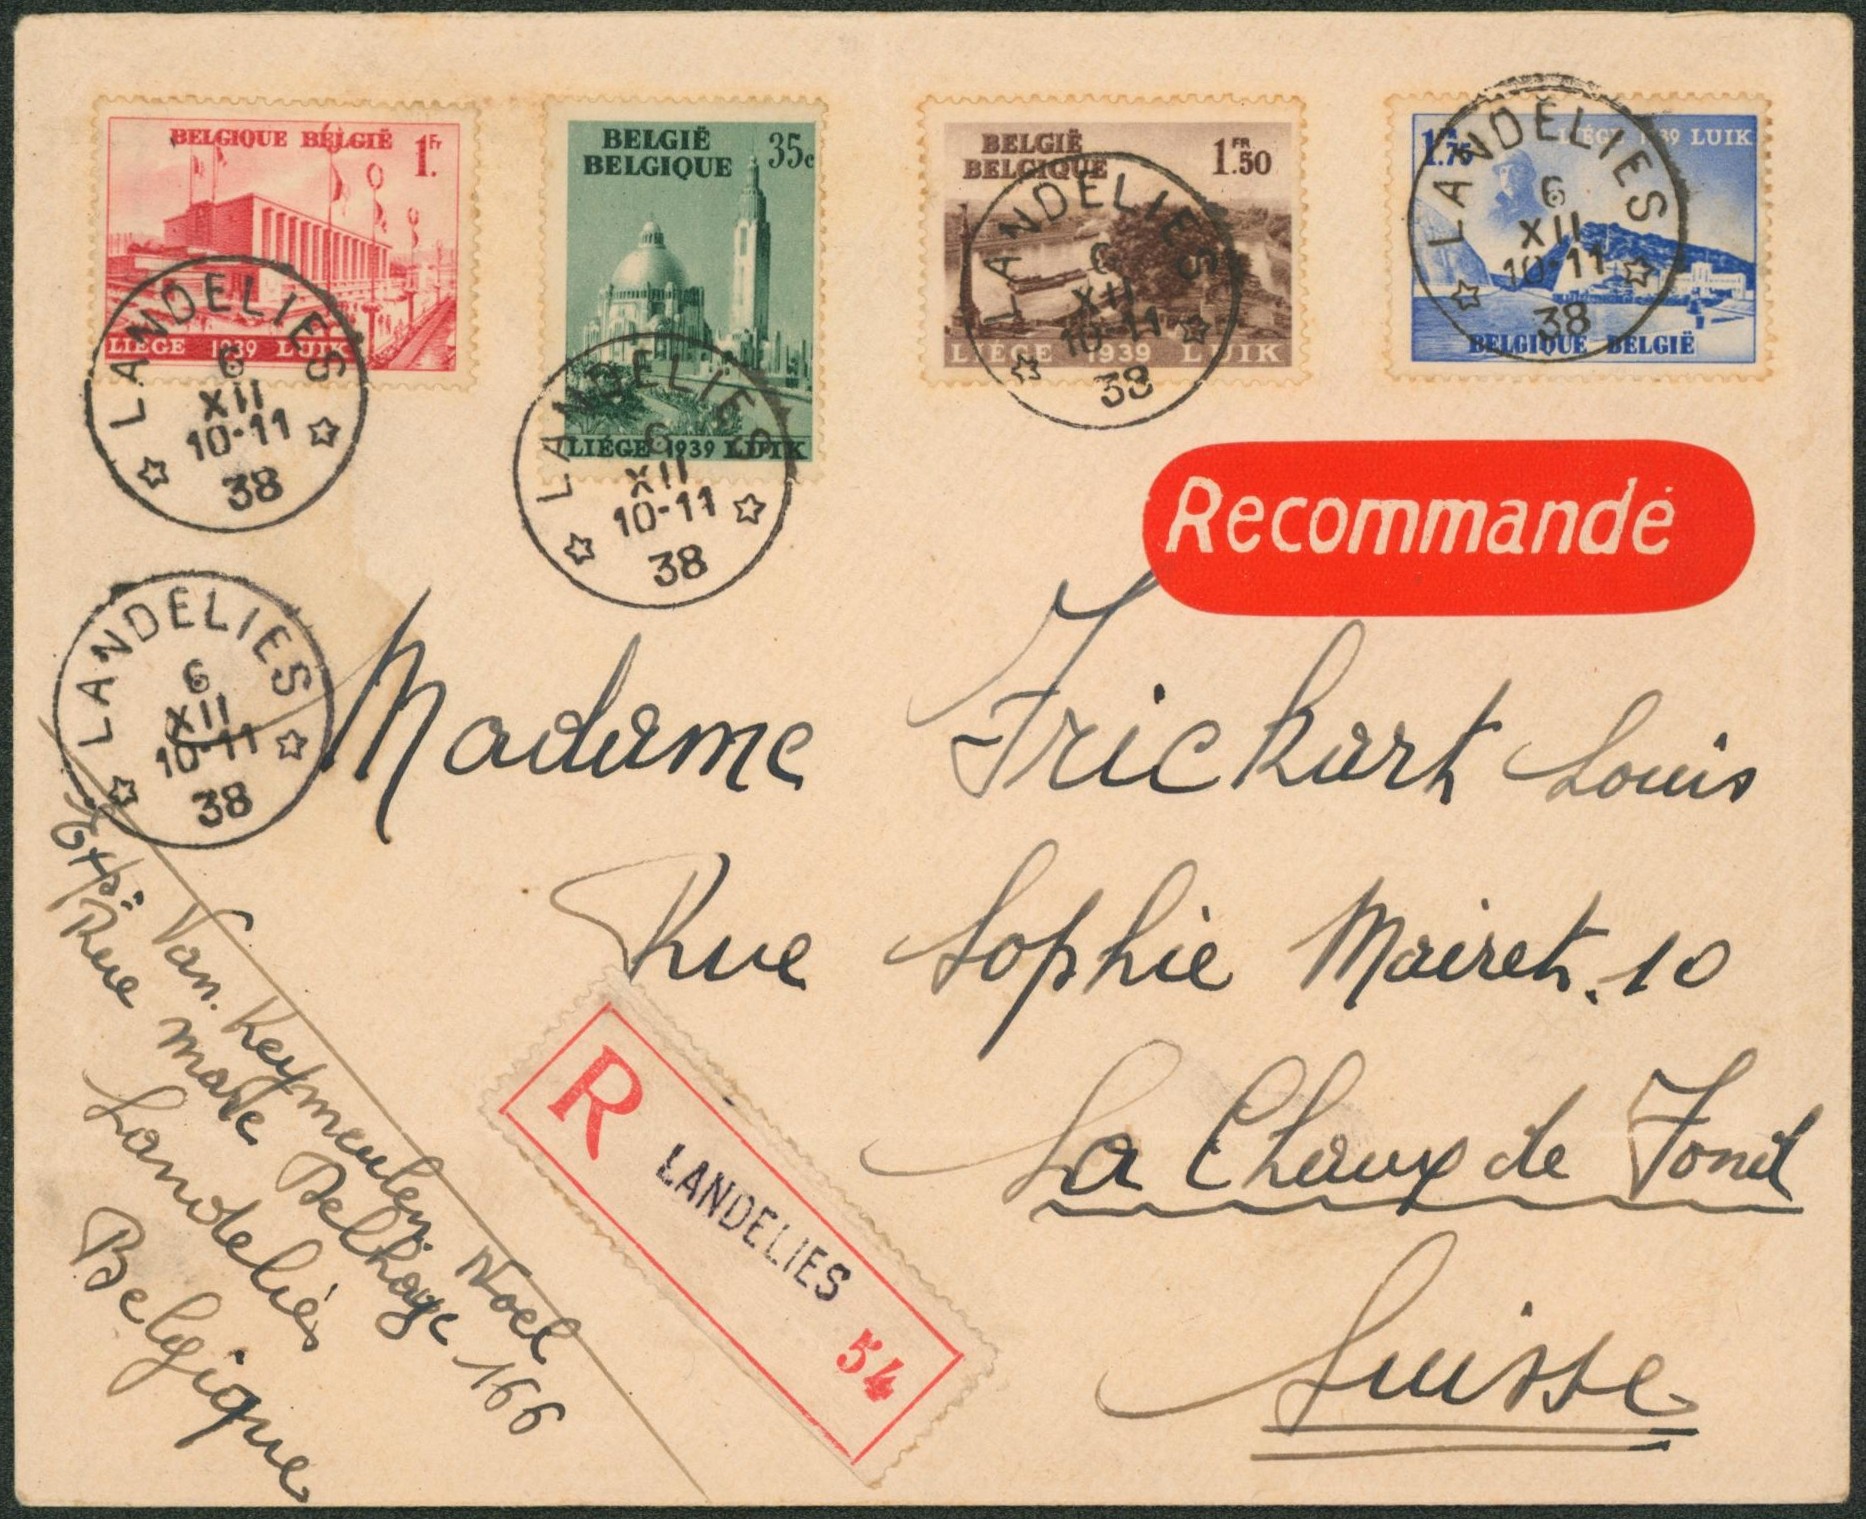 BELGIQUE BELGIË 1Fr.
LIÉGE 1939 LUIK
BELGIË
BELGIQUE
35c
LIÉGE 1939 LUIK
BELGIË
BELGIQUE
1.FR 50
LIÉGE 1939 LUIK
1.FR 75 LIÉGE 1939 LUIK
BELGIQUE BELGIË
LANDELIES
6
XII
10-11
38
LANDELIES
6
XII
10-11
38
LANDELIES
6
XII
10-11
38
LANDELIES
6
XII
10-11
38
LANDELIES
6
XII
10-11
38
Recommandé
Madame Frickart Louis
Rue Sophie Mairet. 10
La Chaux de Fond
Suisse
Exp: Van. Keymeulen Noel
Rue Delhaye 166
Landeliés
Belgique
R LANDELIES 54